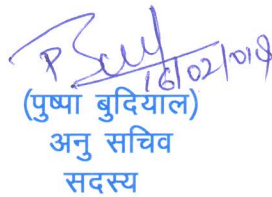 16/02/018
(पुष्पा बुदियाल)
अनु सचिव
सदस्य